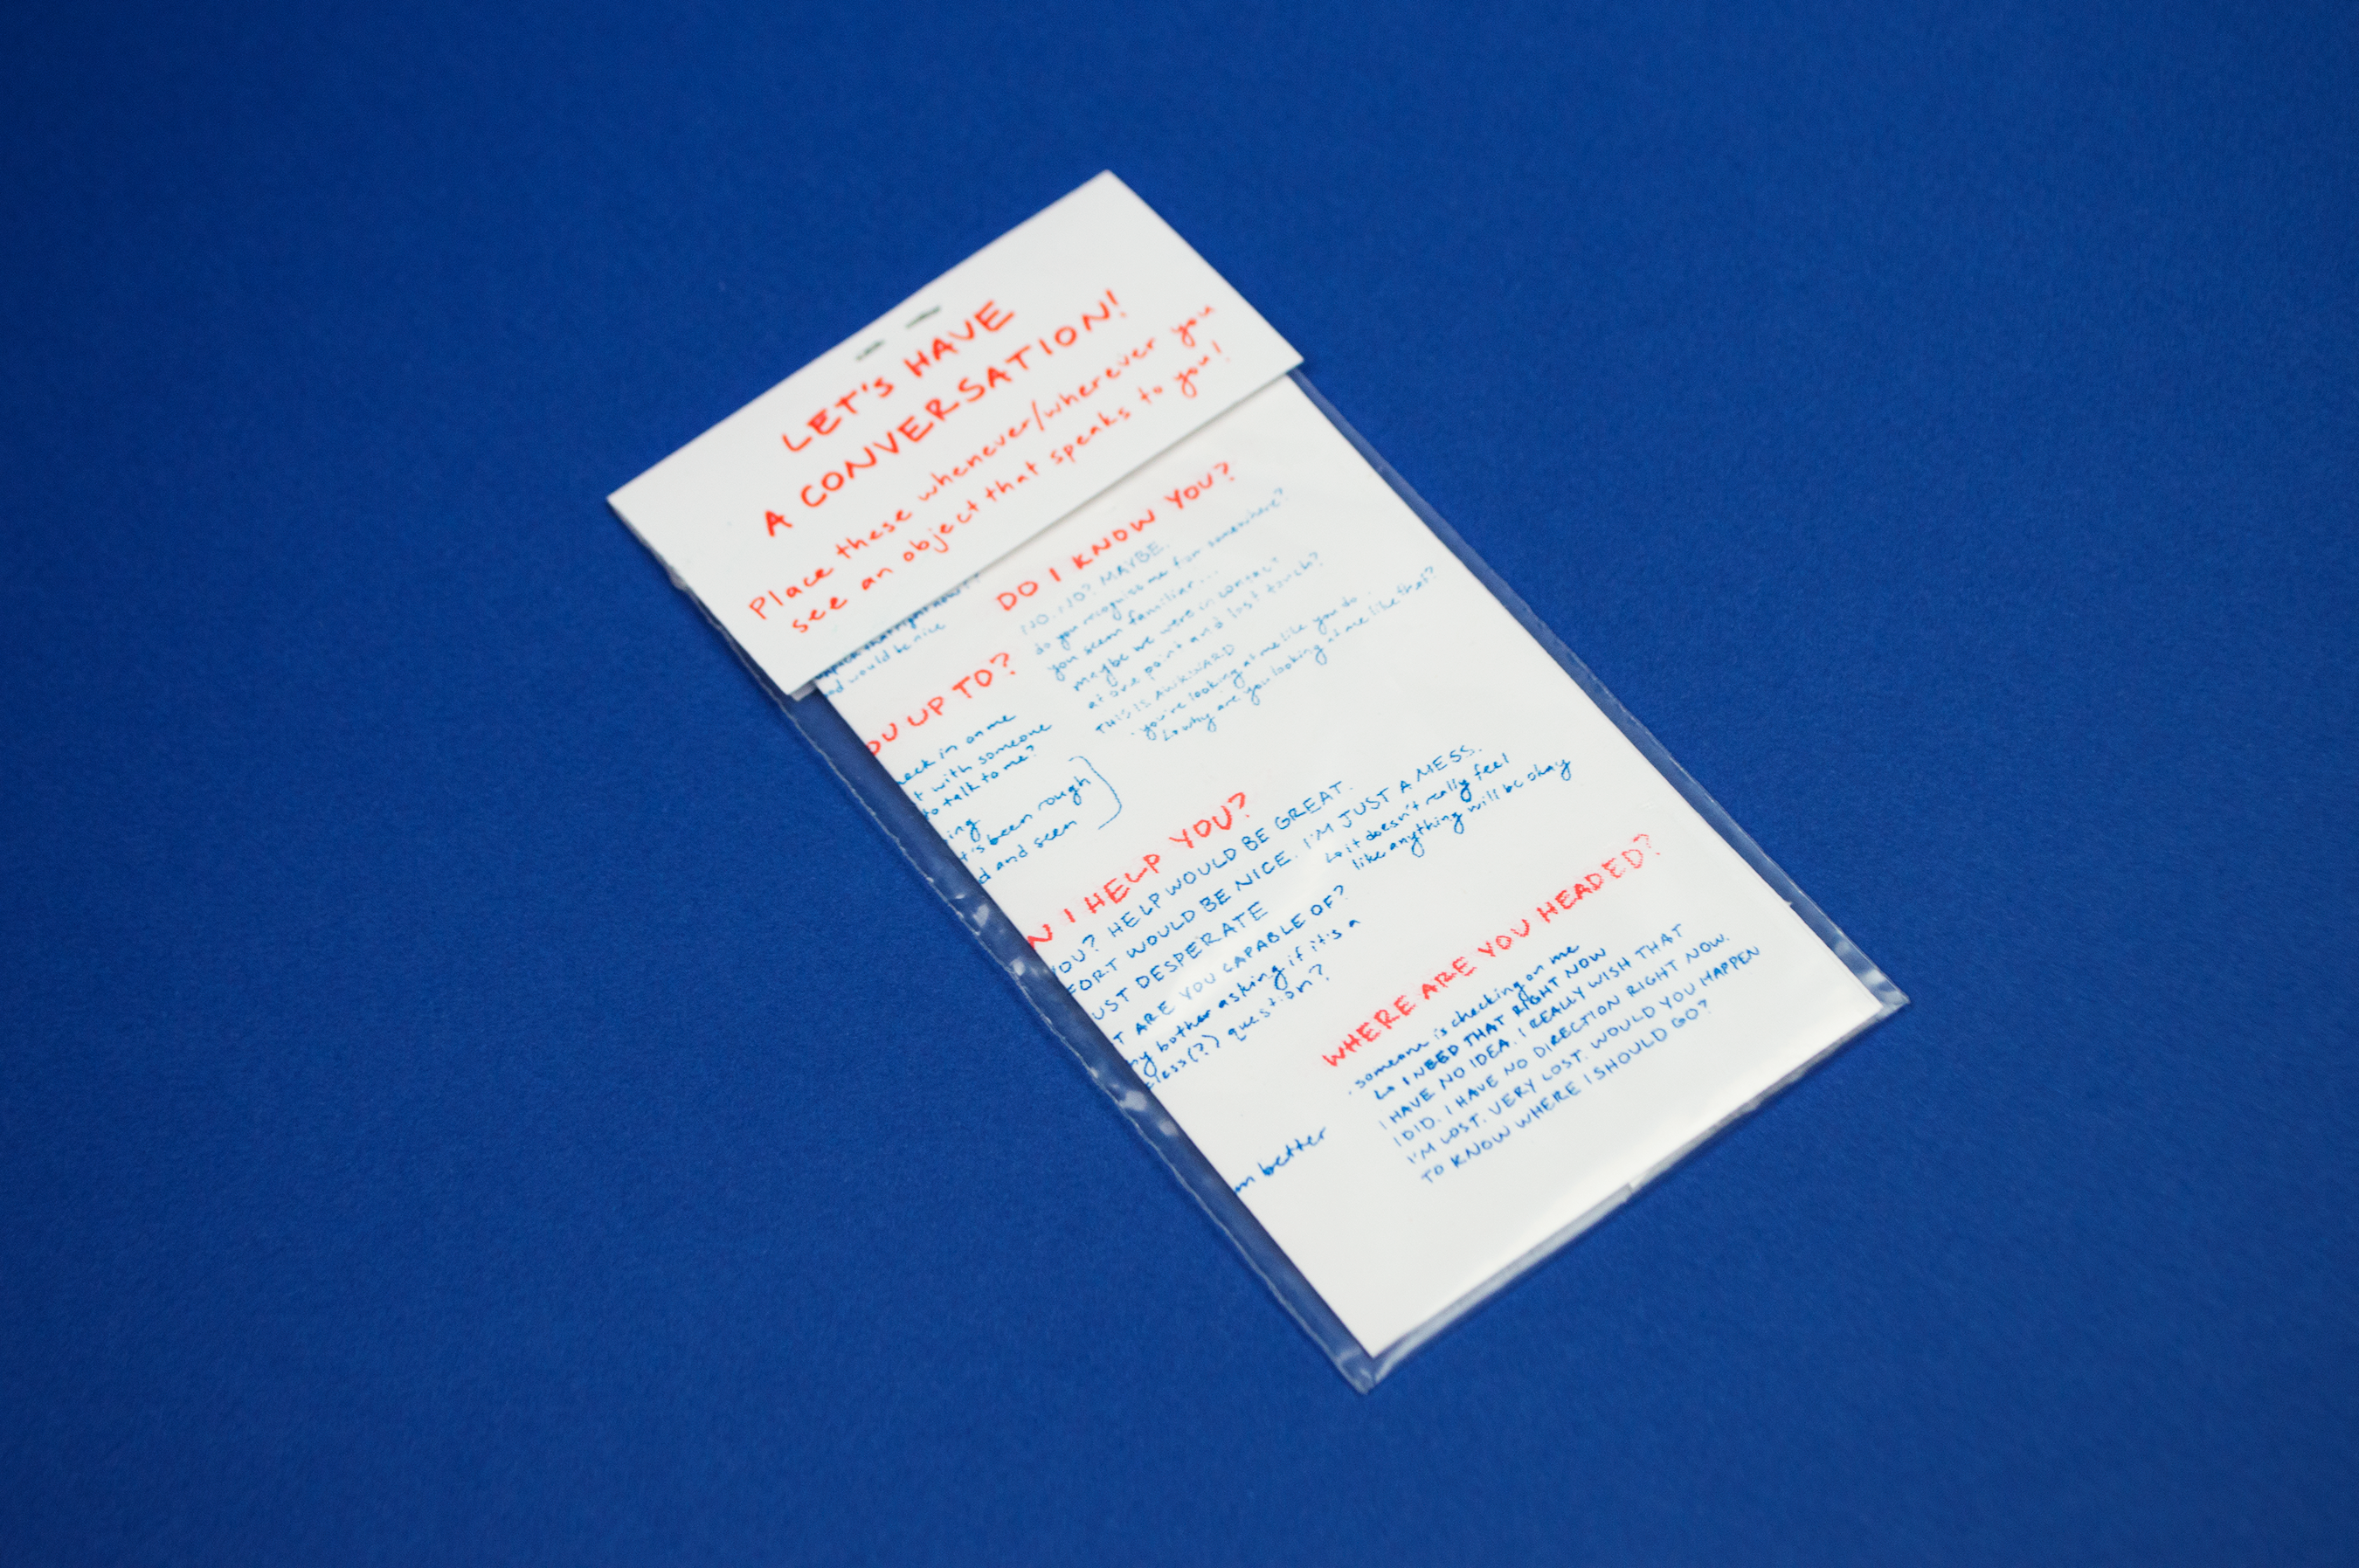 LET'S HAVE
A CONVERSATION!
Place these whenever/wherever you
see an object that speaks to you!
would be nice
DO I KNOW YOU?
NO. NO? MAYBE.
do you recognise me from somewhere?
you seem familiar...
maybe we were in contact
at one point and lost touch?
THIS IS AWKWARD
you're looking at me like you do.
why are you looking at me like that?
OU UP TO?
eck in on me
t with someone
to talk to me?
ing
t's been rough
d and seen
N I HELP YOU?
YOU? HELP WOULD BE GREAT.
FORT WOULD BE NICE. I'M JUST A MESS.
it doesn't really feel
like anything will be okay
UST DESPERATE
T ARE YOU CAPABLE OF?
hy bother asking if it's a
less(?) question?
m better
WHERE ARE YOU HEADED?
someone is checking on me
I NEED THAT RIGHT NOW
I HAVE NO IDEA. I REALLY WISH THAT
I DID. I HAVE NO DIRECTION RIGHT NOW.
I'M LOST. VERY LOST. WOULD YOU HAPPEN
TO KNOW WHERE I SHOULD GO?